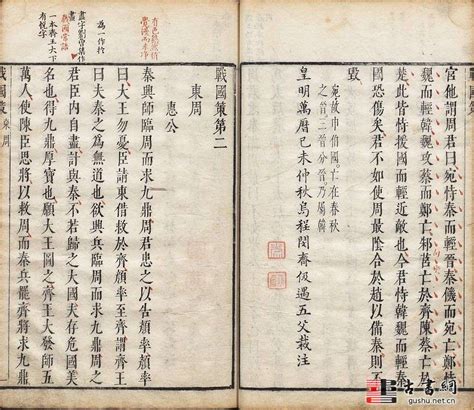 宮他謂周君曰宛恃秦而輕晉秦饑而宛亡鄭恃
魏而輕韓魏攻蔡而鄭亡邾莒亡於齊陳蔡亡於
楚此皆恃援國而輕近敵也今君恃韓魏而輕秦
國恐傷矣君不如使周最陰合於趙以備秦則不
毀
宛故申伯國亡在春秋
之首三晉分晉乃屬韓
皇明萬曆己未仲秋烏程閔齋伋遇五父裁注
戰國策第二
東周
惠公
秦興師臨周而求九鼎周君患之以告顏率顏率
曰大王勿憂臣請東借救於齊顏率至齊謂齊王
曰夫秦之為無道也欲興兵臨周而求九鼎周之
君臣內自盡計與秦不若歸之大國夫存危國美
名也得九鼎厚寶也願大王圖之齊王大發師五
萬人使陳臣思將以救周而秦兵罷齊將求九鼎
盡字劉曾集作
畫
一本齊王大下
有悅字
戰國策 東周
古書網
gushu.net.cn